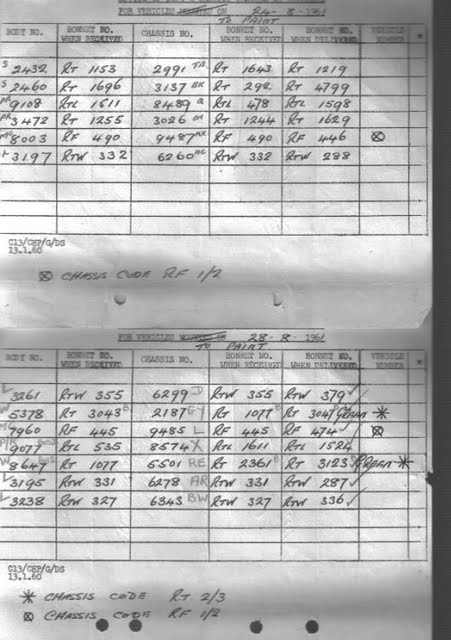 FOR VEHICLES MOUNTED ON 24-8-1961
TO PAINT
BODY NO. BONNET NO. WHEN RECEIVED CHASSIS NO. BONNET NO. WHEN RECEIVED BONNET NO. WHEN DELIVERED VEHICLE NUMBER
S 2432 RT 1153 2991 TB RT 1643 RT 1219
S 2460 RT 1696 3137 BK RT 292 RT 4799
PR 9108 RTL 1511 8489 Q RTL 478 RTL 1598
PR 3472 RT 1255 3026 RT 1244 RT 1629
MC 8003 RF 490 9487 MX RF 490 RF 446 ⊗
L 3197 RTW 332 6260 AC RTW 332 RTW 288
C13/CHP/Q/DS
13.1.60
⊗ CHASSIS CODE RF 1/2
FOR VEHICLES MOUNTED ON 28-8-1961
TO PAINT
BODY NO. BONNET NO. WHEN RECEIVED CHASSIS NO. BONNET NO. WHEN RECEIVED BONNET NO. WHEN DELIVERED VEHICLE NUMBER
L 3261 RTW 355 6299 D RTW 355 RTW 379 ✓
W 5378 RT 3048 B 2187 G RT 1077 B RT 3047 GREEN *
MC 7960 RF 445 9485 L RF 445 RF 474 ✓ ⊗
P/R 9077 RTL 535 8574 X RTL 1611 RTL 1524
W 8647 RT 1077 5501 RE RT 2361 B RT 3123 GREEN *
L 3195 RTW 331 6278 AR RTW 331 RTW 287 ✓
L 3238 RTW 327 6343 BW RTW 327 RTW 336 ✓
C13/CHP/Q/DS
13.1.60
* CHASSIS CODE RT 2/3
⊗ CHASSIS CODE RF 1/2